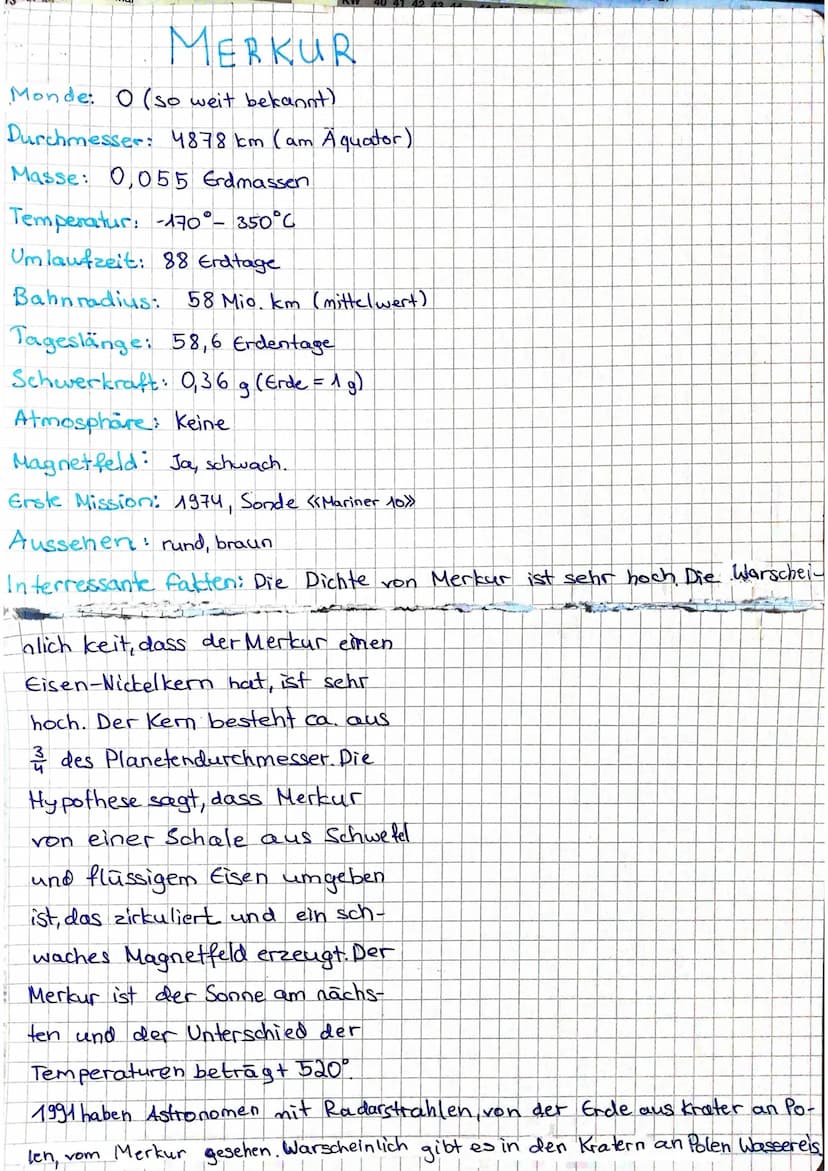 KW 40 41 42 43 44
MERKUR
Monde: 0 (so weit bekannt)
Durchmesser: 4878 km (am Äquator)
Masse: 0,055 Erdmassen
Temperatur: -170°- 350°C
Umlaufzeit: 88 Erdtage
Bahnradius: 58 Mio. km (mittelwert)
Tageslänge: 58,6 Erdentage
Schwerkraft: 0,36 g (Erde = 1 g)
Atmosphäre: Keine
Magnetfeld: Ja, schwach.
Erste Mission: 1974, Sonde «Mariner 10»
Aussehen: rund, braun
Interressante fakten: Die Dichte von Merkur ist sehr hoch. Die Warschei-
nlich keit, dass der Merkur einen
Eisen-Nickelkern hat, ist sehr
hoch. Der Kern besteht ca. aus
3/4 des Planetendurchmesser. Die
Hypothese sagt, dass Merkur
von einer Schale aus Schwefel
und flüssigem Eisen umgeben
ist, das zirkuliert und ein sch-
waches Magnetfeld erzeugt. Der
Merkur ist der Sonne am nächs-
ten und der Unterschied der
Temperaturen beträgt 520°.
1991 haben Astronomen mit Radarstrahlen, von der Erde aus Krater an Po-
len, vom Merkur gesehen. Warscheinlich gibt es in den Kratern an Polen Wassereis